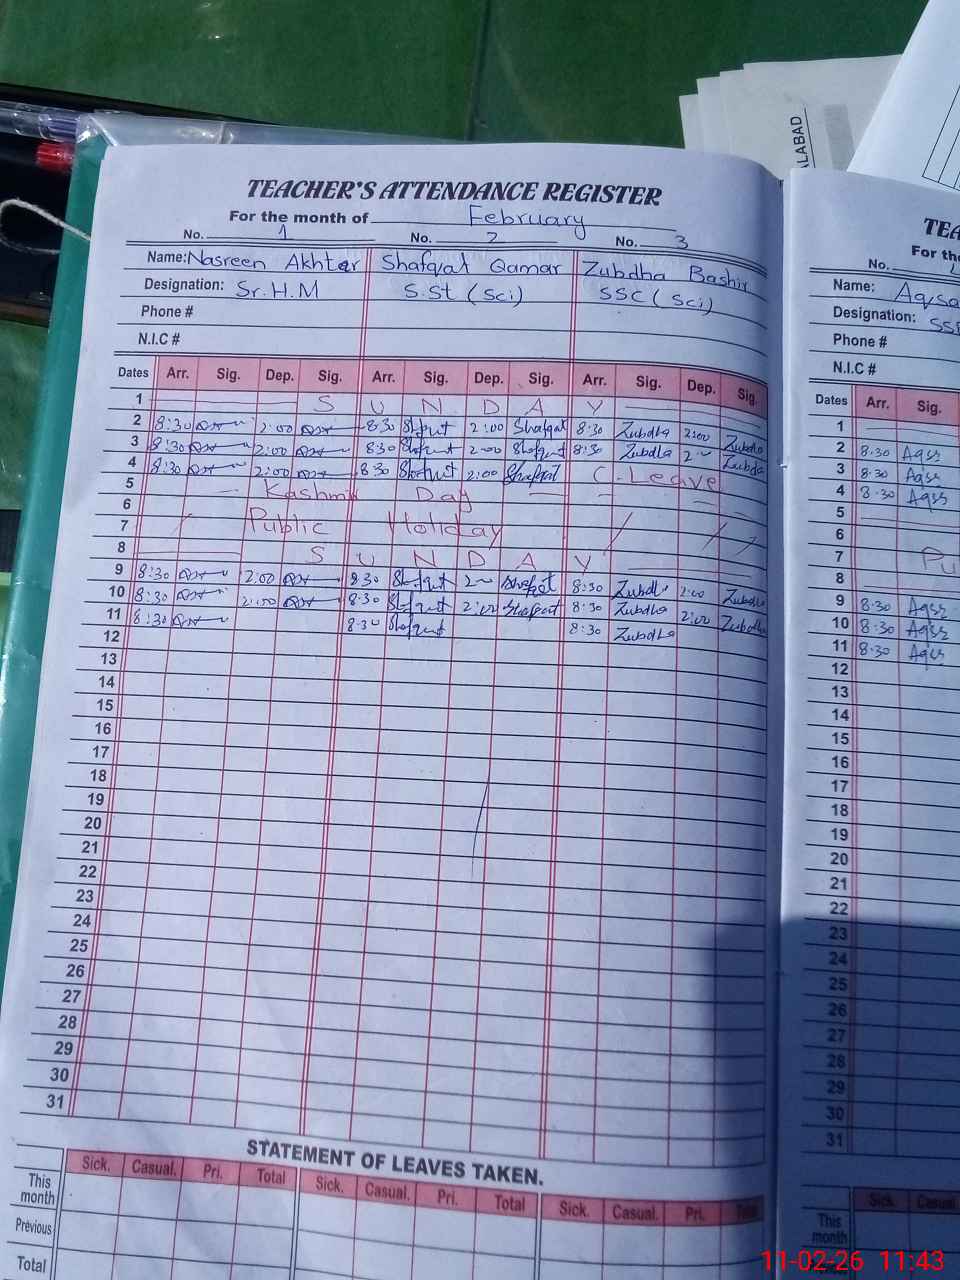 LABAD
TEACHER'S ATTENDANCE REGISTER
For the month of February
No. 1 No. 2 No. 3
Name: Nasreen Akhter Shafqat Qamar Zubdha Bashir
Designation: Sr.H.M S.St (Sci) SSC (Sci)
Phone #
N.I.C #
Dates Arr. Sig. Dep. Sig. Arr. Sig. Dep. Sig. Arr. Sig. Dep. Sig.
1 S U N D A Y
2 8:30 2:00 8:30 2:00 Shafqat 8:30 Zubdha 2:00 Zubdha
3 8:30 2:00 8:30 2:00 8:30 Zubdha 2:- Zubda
4 8:30 2:00 8:30 2:00 Shafqat C. Leave
5 Kashmir Day
6
7 Public Holiday
8 S U N D A Y
9 8:30 2:00 8:30 2:- 8:30 Zubdha 2:00 Zubdha
10 8:30 2:00 8:30 2:00 8:30 Zubdha 2:00 Zubdha
11 8:30 8:30 8:30 Zubdha
12
13
14
15
16
17
18
19
20
21
22
23
24
25
26
27
28
29
30
31
STATEMENT OF LEAVES TAKEN.
Sick. Casual. Pri. Total Sick. Casual. Pri. Total Sick. Casual. Pri. Total
This month
Previous
Total
TEA
For the
No.
Name: Aqsa
Designation: SS
Phone #
N.I.C #
Dates Arr. Sig.
1
2 8:30 Aqss
3 8:30 Aqss
4 8:30 Aqss
5
6
7 Pu
8
9 8:30 Aqss
10 8:30 Aqss
11 8:30 Aqss
12
13
14
15
16
17
18
19
20
21
22
23
24
25
26
27
28
29
30
31
Sick. Casual.
This month
Previous
11-02-26 11:43